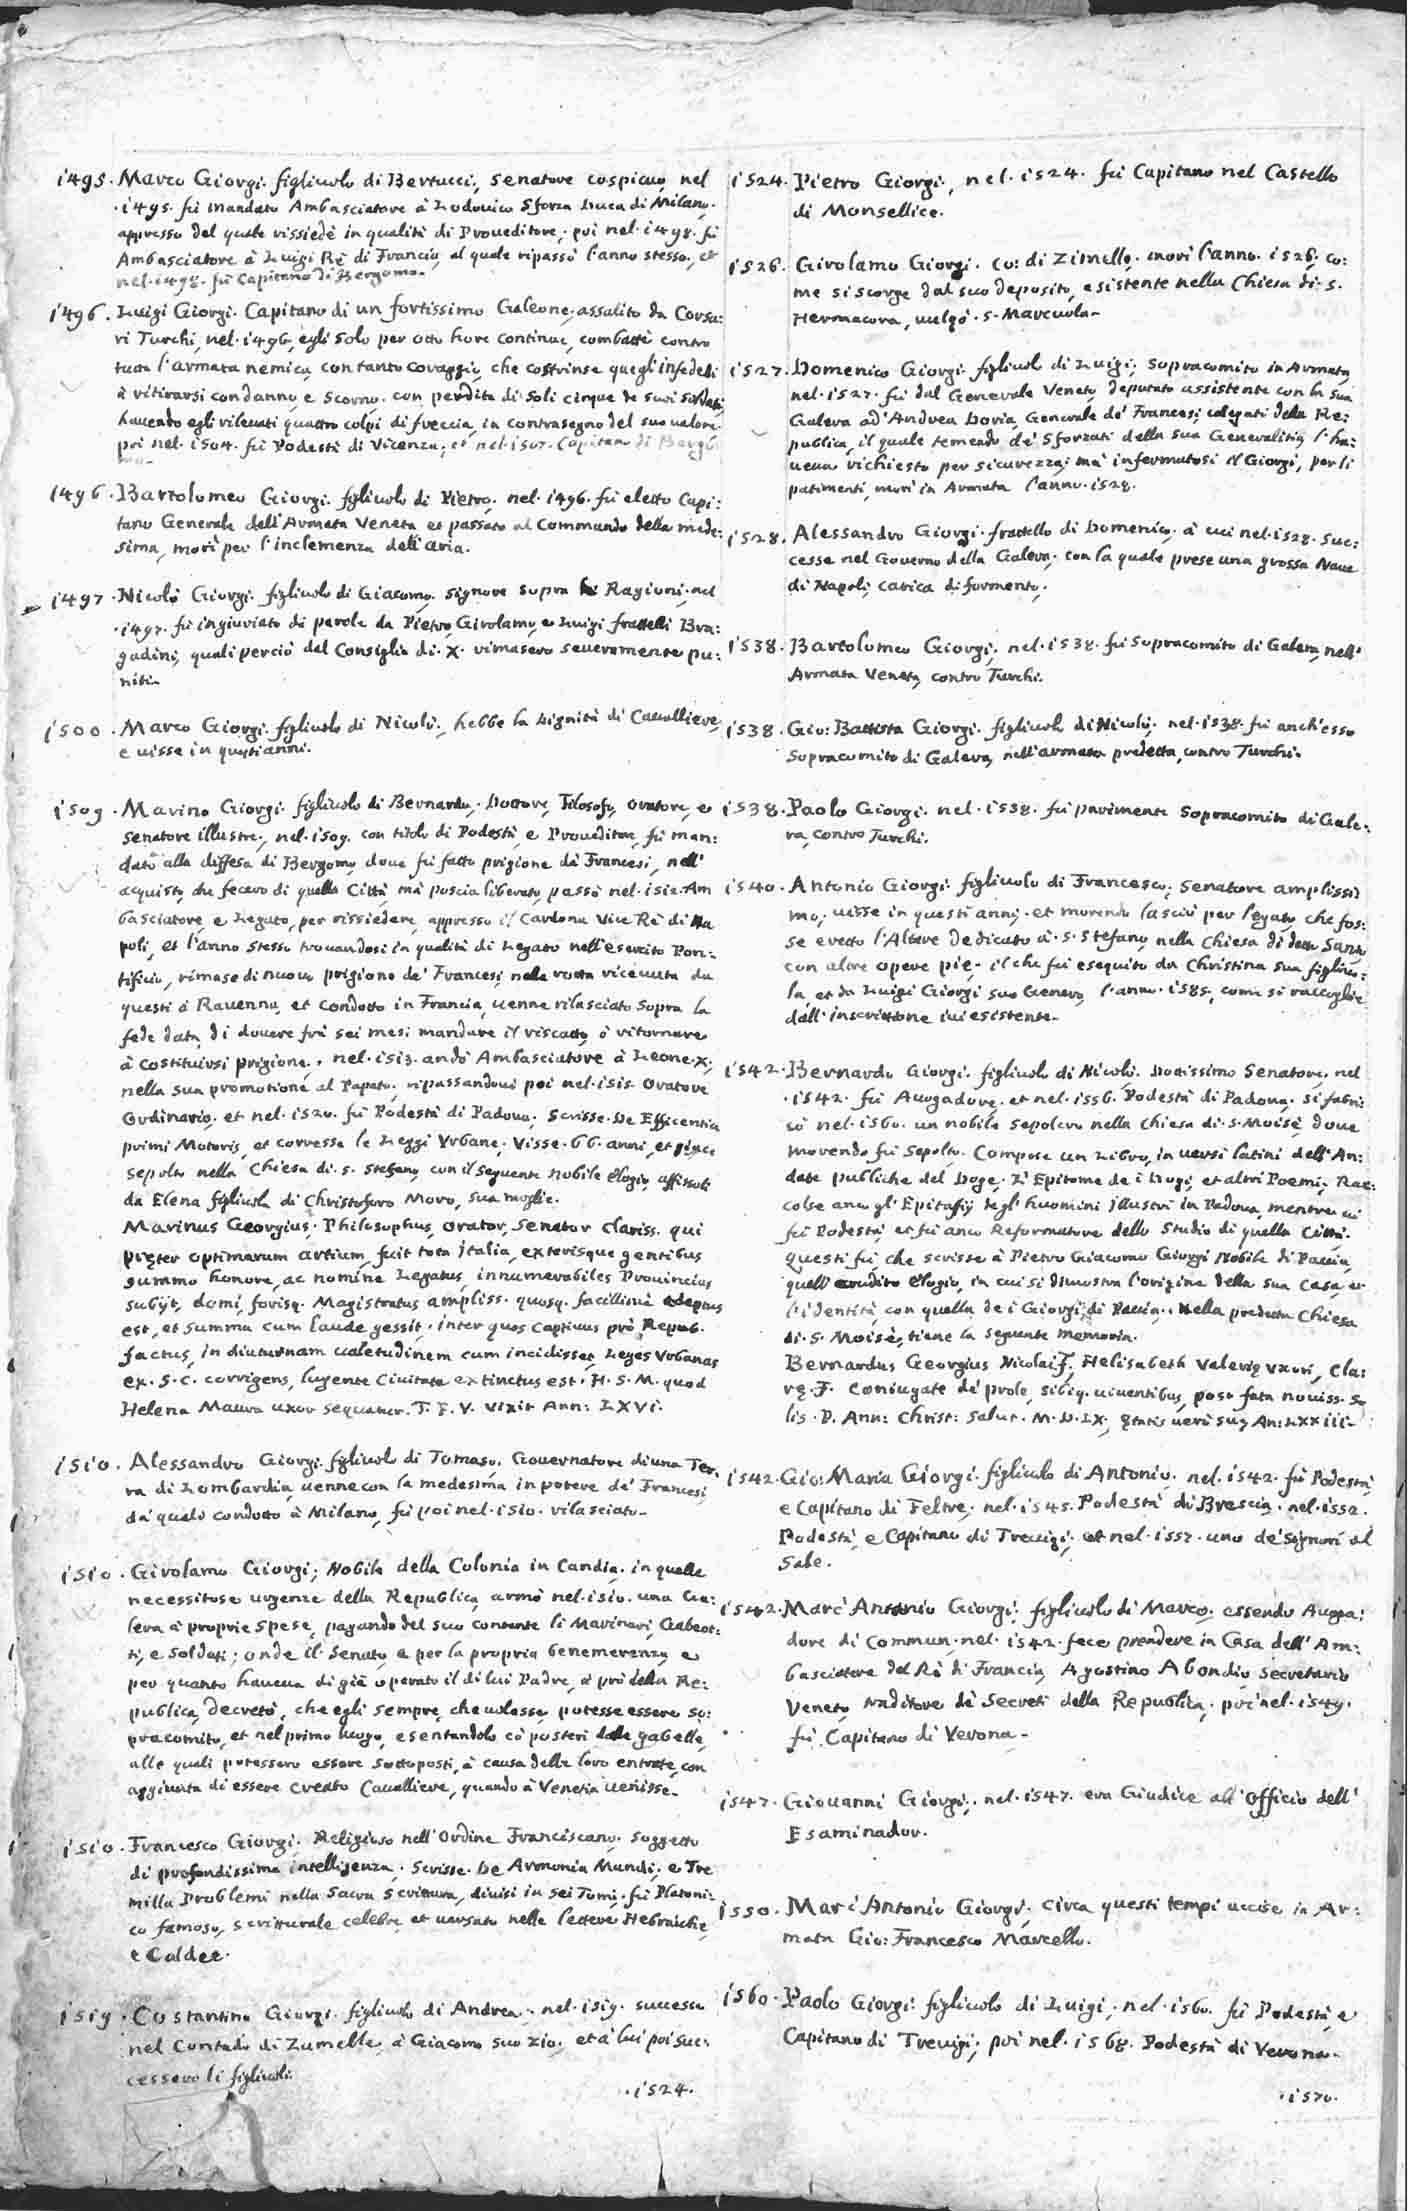 1495. Marco Giorgi figliuolo di Bertucci, Senatore cospicuo, nel
.1495. fù mandato Ambasciatore à Lodovico Sforza Duca di Milano.
appresso del quale rissiedè in qualità di Proueditore, poi nel .1498. fù
Ambasciatore à Luigi Rè di Francia, al quale ripassò l'anno stesso, et
nel .1498. fù Capitano di Bergomo.
1496. Luigi Giorgi. Capitano di un fortissimo Galeone, assalito da Corsa:
ri Turchi, nel .1496, egli solo per otto hore continue, combattè contro
tutta l'armata nemica, con tanto coraggio, che costrinse quegl'infedeli
à ritirarsi con danno, e scorno. con perdita di soli cinque de suoi soldati,
hauendo egli rileuati quattro colpi di freccia, in contrasegno del suo valore.
poi nel .1504. fù Podestà di Vicenza, et nel .1507. Capitano di Bergo
mo.
1496. Bartolomeo Giorgi. figliuolo di Pietro, nel .1496. fù eletto Capi:
tano Generale dell'Armata Veneta et passato al Commando della mede:
sima, morì per l'inclemenza dell'aria.
1497. Nicolò Giorgi. figliuolo di Giacomo, signore sopra le Ragioni, nel
.1497. fù ingiuriato di parole da Pietro, Girolamo, e Luigi fratelli Bra:
gadini, quali perciò dal Consiglio di .X. rimasero seueramente pu:
niti.
1500. Marco Giorgi. figliuolo di Nicolò, hebbe la Dignità di Caualliere,
e uisse in questi anni.
1509. Marino Giorgi. figliuolo di Bernardo, Dottore, Filosofo, Oratore, e
Senatore illustre, nel .1509. con titolo di Podestà, e Proueditore, fù man:
dato alla diffesa di Bergomo, doue fù fatto prigione da Francesi, nell'
acquisto, che fecero di quella Città, mà poscia liberato, passò nel .1512. Am
basciatore, e Legato, per rissiedere, appresso il Cardona Vice Rè di Na
poli, et l'anno stesso trouandosi in qualità di Legato nell'esercito Pon:
tificio, rimase di nuouo prigione de' Francesi, nella rotta riceuuta da
questi à Rauenna, et condotto in Francia, uenne rilasciato sopra la
fede data, di douere frà sei mesi mandare il riscatto, ò ritornare
à costituirsi prigione. nel .1513. andò Ambasciatore à Leone .X.
nella sua promotione al Papato. ripassandoui poi nel .1515. Oratore
Ordinario. et nel .1520. fù Podestà di Padoua. Scrisse. De Efficentia
primi Motoris, et corresse le Leggi Vrbane. Visse .66. anni, et giace
sepolto nella Chiesa di .S. Stefano, con il seguente nobile elogio, affissoli
da Elena figliuola di Christoforo Moro, sua moglie.
Marinus Georgius. Philosophus, orator, Senator clariss. qui
pręter optimarum artium, fuit tota Italia, exterisque gentibus
summo honore, ac nomine Legatus, innumerabiles Prouincias
subijt, domi, forisq. Magistratus ampliss. quosq. facillimè adeptus
est, et summa cum laude gessit. inter quos captiuus prò Repub.
factus, in diuturnam ualetudinem cum incidisset, Leges Vrbanas
ex .S.C. corrigens, lugente Ciuitate extinctus est. H.S.M. quod
Helena Maura uxor sequatur. T.F.V. Vixit Ann: LXVI.
1510. Alessandro Giorgi. figliuolo di Tomaso, Gouernatore di una Ter:
ra di Lombardia, uenne con la medesima in potere de' Francesi,
da quali condotto à Milano, fù poi nel .1510. rilasciato.
1510. Girolamo Giorgi; Nobile della Colonia in Candia, in quelle
necessitose urgenze della Republica, armò nel .1510. una Ga:
lera à proprie spese, pagando del suo contante li Marinari, Galeot:
ti, e Soldati; onde il Senato, e per la propria benemerenza, e
per quanto haueua di già operato il di lui Padre, à prò della Re:
publica, decretò, che egli sempre, che uolesse, potesse essere so:
pracomito, et nel primo luogo, esentandolo cò posteri dalle gabelle,
alle quali potessero essere sottoposti, à causa delle loro entrate, con
aggiunta di essere creato Cauallière, quando à Venetia uenisse.
1510. Francesco Giorgi. Religioso nell'Ordine Franciscano, Soggetto
di profondissima intelligenza. Scrisse. De Armonia Mundi, e Tre
milla Problemi nella Sacra Scrittura, diuisi in sei Tomi. fù Platoni:
co famoso, scritturale celebre, et uersato nelle lettere Hebraiche,
e Caldee.
1519. Costantino Giorgi. figliuolo di Andrea. nel .1519. successe
nel Contado di Zumelle, à Giacomo suo zio, et à lui poi suc:
cessero li figliuoli.
.1524.
1524. Pietro Giorgi, nel .1524. fù Capitano nel Castello
di Monsellice.
1526. Girolamo Giorgi. Co: di Zimelle, morì l'anno .1526, co:
me si scorge dal suo deposito, esistente nella Chiesa di .S.
Hermacora, uulgò .S. Marcuola.
1527. Domenico Giorgi figliuolo di Luigi, Sopracomito in Armata,
nel .1527. fù dal Generale Veneto, deputato assistente con la sua
Galera ad'Andrea Doria, Generale de' Francesi, colegati della Re:
publica, il quale temendo de' Sforzati della sua Generalitia, l'ha:
ueua richiesto per sicurezza; mà infermatosi il Giorgi, per li
patimenti, morì in Armata l'anno .1528.
1528. Alessandro Giorgi. fratello di Domenico, à cui nel .1528. Suc:
cesse nel Gouerno della Galera; con la quale prese una grossa Naue
di Napoli, carica di formento.
1538. Bartolomeo Giorgi, nel .1538. fù Sopracomito di Galera, nell'
Armata Veneta, contro Turchi.
1538. Gio: Battista Giorgi. figliuolo di Nicolò, nel .1538. fù anch'esso
Sopracomito di Galera, nell'armata predetta, contro Turchi.
1538. Paolo Giorgi. nel .1538. fù parimente Sopracomito di Gale:
ra, contro Turchi.
1540. Antonio Giorgi. figliuolo di Francesco, Senatore amplissi
mo, uisse in questi anni, et morendo lasciò per legato, che fos:
se eretto l'Altare dedicato à .S. Stefano, nella Chiesa di detto Santo,
con altre opere pie. il che fù esequito da Christina sua figliuo:
la, et da Luigi Giorgi suo Genero, l'anno .1585, come si raccoglie
dall'inscrittione iui esistente.
1542. Bernardo Giorgi. figliuolo di Nicolò. Dottissimo Senatore, nel
.1542. fù Auogadore, et nel .1556. Podestà di Padoua, si fabri:
cò nel .1560. un nobile sepolcro nella Chiesa di .S. Moisè, doue
morendo fù sepolto. Compose un Libro, in uersi latini dell'An:
date publiche del Doge. L'Epitome de i Dogi, et altri Poemi, Rac:
colse anco gl'Epitafij degl'huomini illustri in Padoua, mentre iui
fù Podestà et fù anco Reformatore dello Studio di quella Città.
questi fù, che scrisse à Pietro Giacomo Giorgi Nobile di Pauia,
quell'erudito elogio, in cui si dimostra l'origine della sua Casa, et
l'identità con quella de i Giorgi, di Pauia. Nella predetta Chiesa
di .S. Moisè, tiene la seguente memoria.
Bernardus Georgius Nicolai F. Helisabeth Valerię Vxori, Cla:
rę. F. Coniugate de' prole, sibiq. uiuentibus, post fata nouiss. So
lis. D. Ann: Christ: Salut. M.D.LX, ętatis uerò suę An: LXXIII.
1542. Gio: Maria Giorgi. figliuolo di Antonio, nel .1542. fù Podestà,
e Capitano di Feltre, nel .1545. Podestà di Brescia, nel .1552.
Podestà, e Capitano di Treuigi, et nel .1557. uno de' Signori al
Sale.
1542. Marc'Antonio Giorgi. figliuolo di Marco, essendo Auoga:
dore di Commun, nel .1542. fece prendere in Casa dell'Am:
basciatore del Rè di Francia, Agostino Abondio Secretario
Veneto, traditore de' Secreti della Republica. poi nel .1549.
fù Capitano di Verona.
1547. Giouanni Giorgi, nel .1547. era Giudice all'officio dell'
Esaminador.
1550. Marc'Antonio Giorgi, circa questi tempi uccise in Ar:
mata Gio: Francesco Marcello.
1560. Paolo Giorgi figliuolo di Luigi, nel .1560. fù Podestà, e
Capitano di Treuigi, poi nel .1568. Podestà di Verona.
.1570.